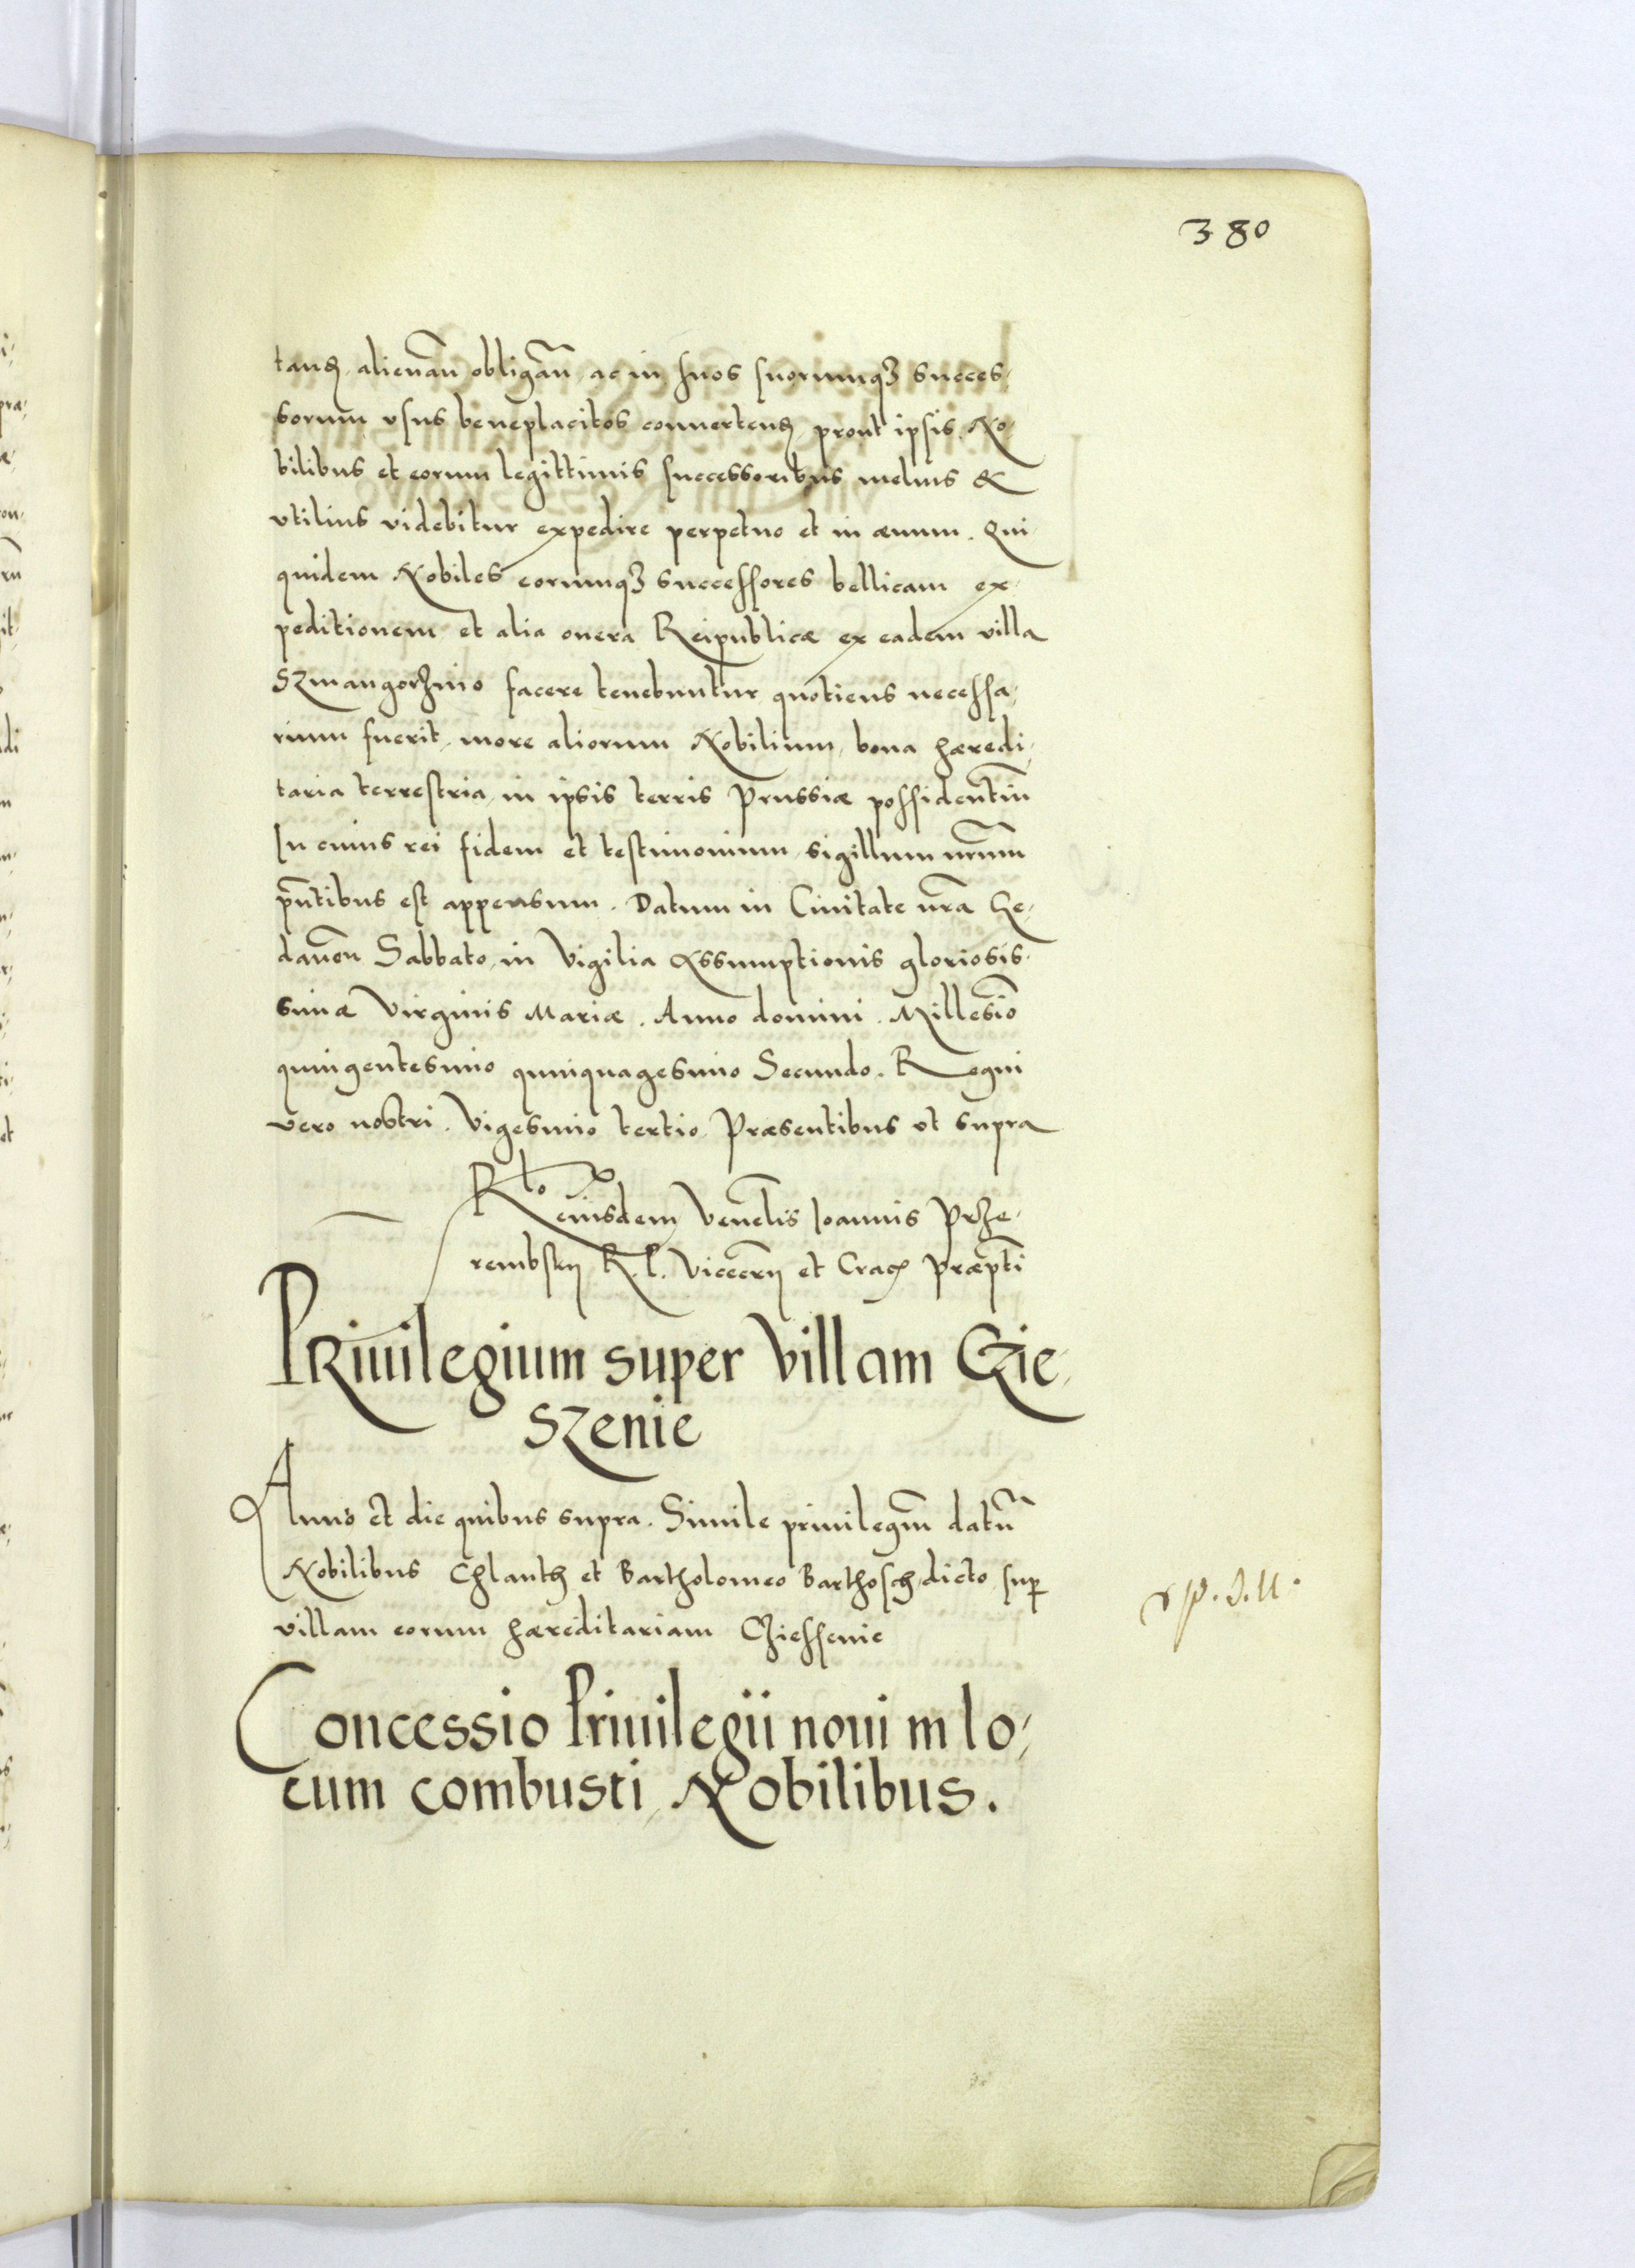 380
tand, alienan̄ obligan̄, ac in suos suorumqȝ succes-
sorum vsus beneplacitos conuertend, prout ipsis No-
bilibus et eorum legittimis successoribus melius &
vtilius videbitur expedire perpetuo et in æuum. Qui
quidem Nobiles eorumqȝ successores bellicam ex-
peditionem et alia onera Reipublicæ ex eadem villa
Szmangorzino facere tenebuntur, quotiens necessa-
rium fuerit, more aliorum Nobilium, bona hæredi-
taria terrestria, in ipsis terris Prussiæ possidentiū
In cuius rei fidem et testimonium, sigillum nr̄um
pn̄tibus est appensum. Datum in Ciuitate nr̄a Ge-
danen̄ Sabbato, in Vigilia Assumptionis gloriosis-
simæ Virginis Mariæ. Anno domini. Millesīo
quingentesimo quinquagesimo Secundo. Regni
vero nostri. Vigesimo tertio. Præsentibus vt supra
Rlo eiusdem Venelis̄ Ioannis Prze-
rembskij R. P. Vicecrij et Crac præpti
Priuilegium super Villam Czie-
szenie
Anno et die quibus supra. Simile priuilegm̄ datū
Nobilibus Chlanth et Bartholomeo Barthosch, dicto, sup
villam eorum hæreditariam Cziessenie
Concessio Priuilegii noui in lo-
cum combusti, Nobilibus.